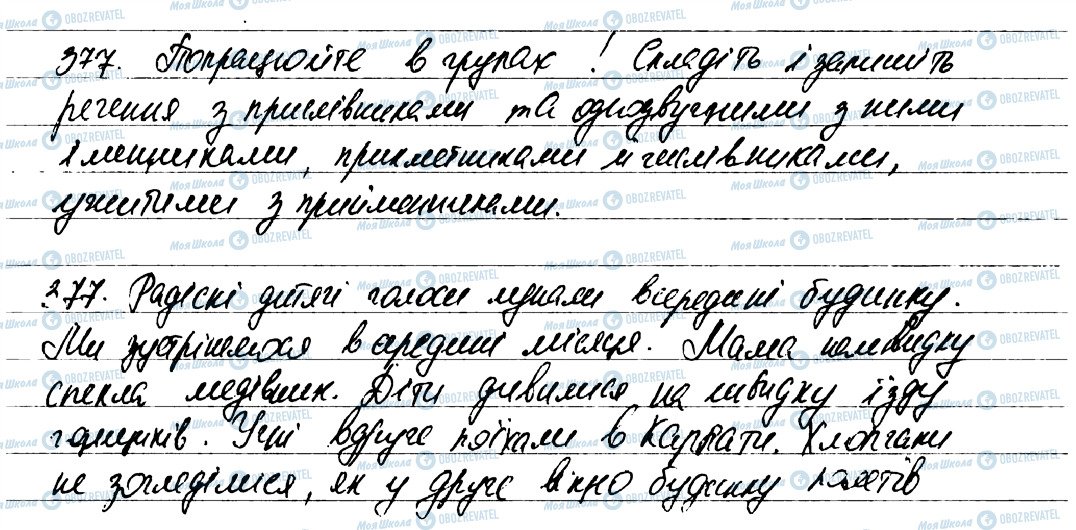 377. Попрацюйте в групах! Складіть і запишіть
речення з прислівниками та однозвучними з ними
іменниками, прикметниками й числівниками,
ужитими з прийменниками.
377. Радіскі дитячі голоси лунали всередині будинку.
Ми зустрінемося в середині місяця. Мама нашвидку
спекла медівник. Діти дивилися на швидку їзду
гонщиків. Учні вдруге поїхали в Карпати. Хлопчаки
не згледілися, як у друге вікно будинку полетів